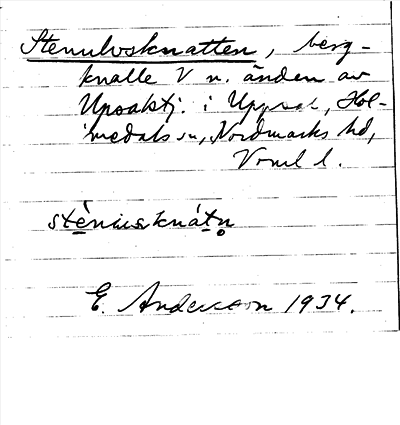 Stenulvsknatten, berg-
knalle V n. änden av
Upsaltj. i Uppsal, Hol-
medals sn, Nordmarks hd,
Vrml l.
stènusknátn
E. Andersson 1934.